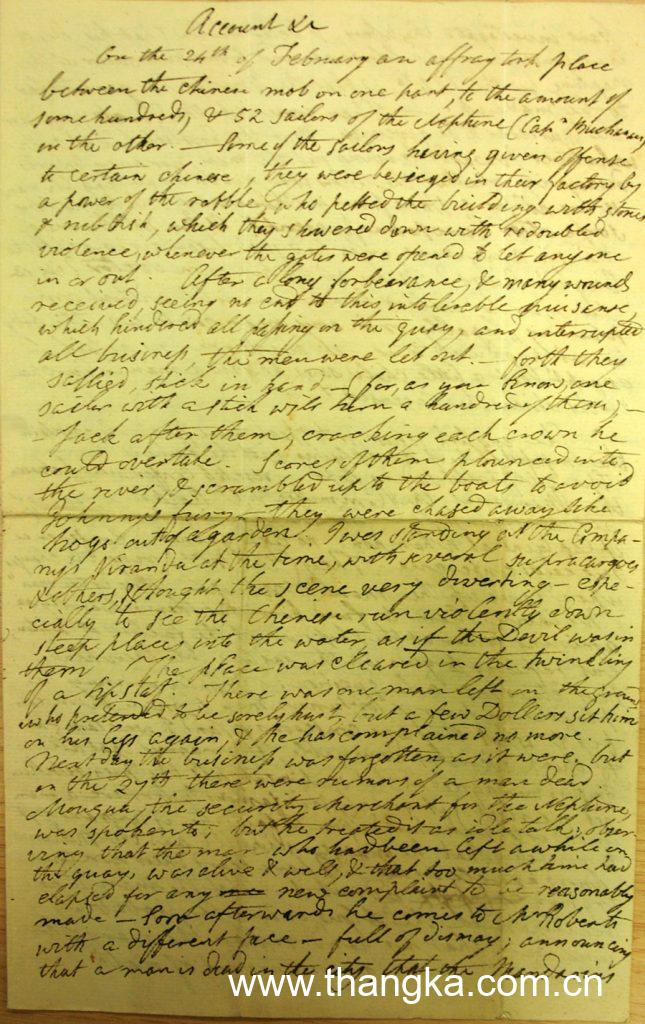 Account &c
On the 24th of February an affray took place
between the Chinese mob on one part, to the amount of
some hundreds, & 52 sailors of the Neptune (Capn Buchanan)
on the other. — Some of the sailors having given offense
to certain Chinese, they were besieged in their factory by
a power of the rabble, who pelted the building with stones
& rubbish, which they showered down with redoubled
violence, whenever the gates were opened to let anyone
in or out. After a long forbearance, & many wounds
received, seeing no end to this intolerable nuisense,
which hindered all passing on the quay, and interrupted
all business, the men were let out. — forth they
sallied, stick in hand — (for, as you know, one
sailor with a stick will turn a hundred of them) —
— Jack after them, cracking each crown he
could overtake. Scores of them plounced into
the river, & scrambled up to the boats to avoid
Johnny's fury — they were chased away like
hogs out of a garden. I was standing at the Compa-
ny's Viranda at the time, with several supracargoes
& others, & thought the scene very diverting — espe-
cially to see the Chenese run violently down
steep places into the water, as if the Devil was in
them The place was cleared in the twinkling
of a tipstaf. There was one man left on the ground
who pretended to be sorely hurt, but a few Dollars set him
on his legs again, & he has complained no more. —
Next day the business was forgotten, as it were, but
on the 27th there were rumors of a man dead
Mouqua, the security Merchant for the Neptune,
was spoken to, but he treated it as idle talk, obser-
ving that the man who had been left a while on
the quay, was alive & well, & that too much time had
elapsed for any new complaint to be reasonably
made — Soon afterwards he comes to Mr Roberts
with a different face — full of dismay, announcing
that a man is dead in the city, that the Mandarins
www.thangka.com.cn